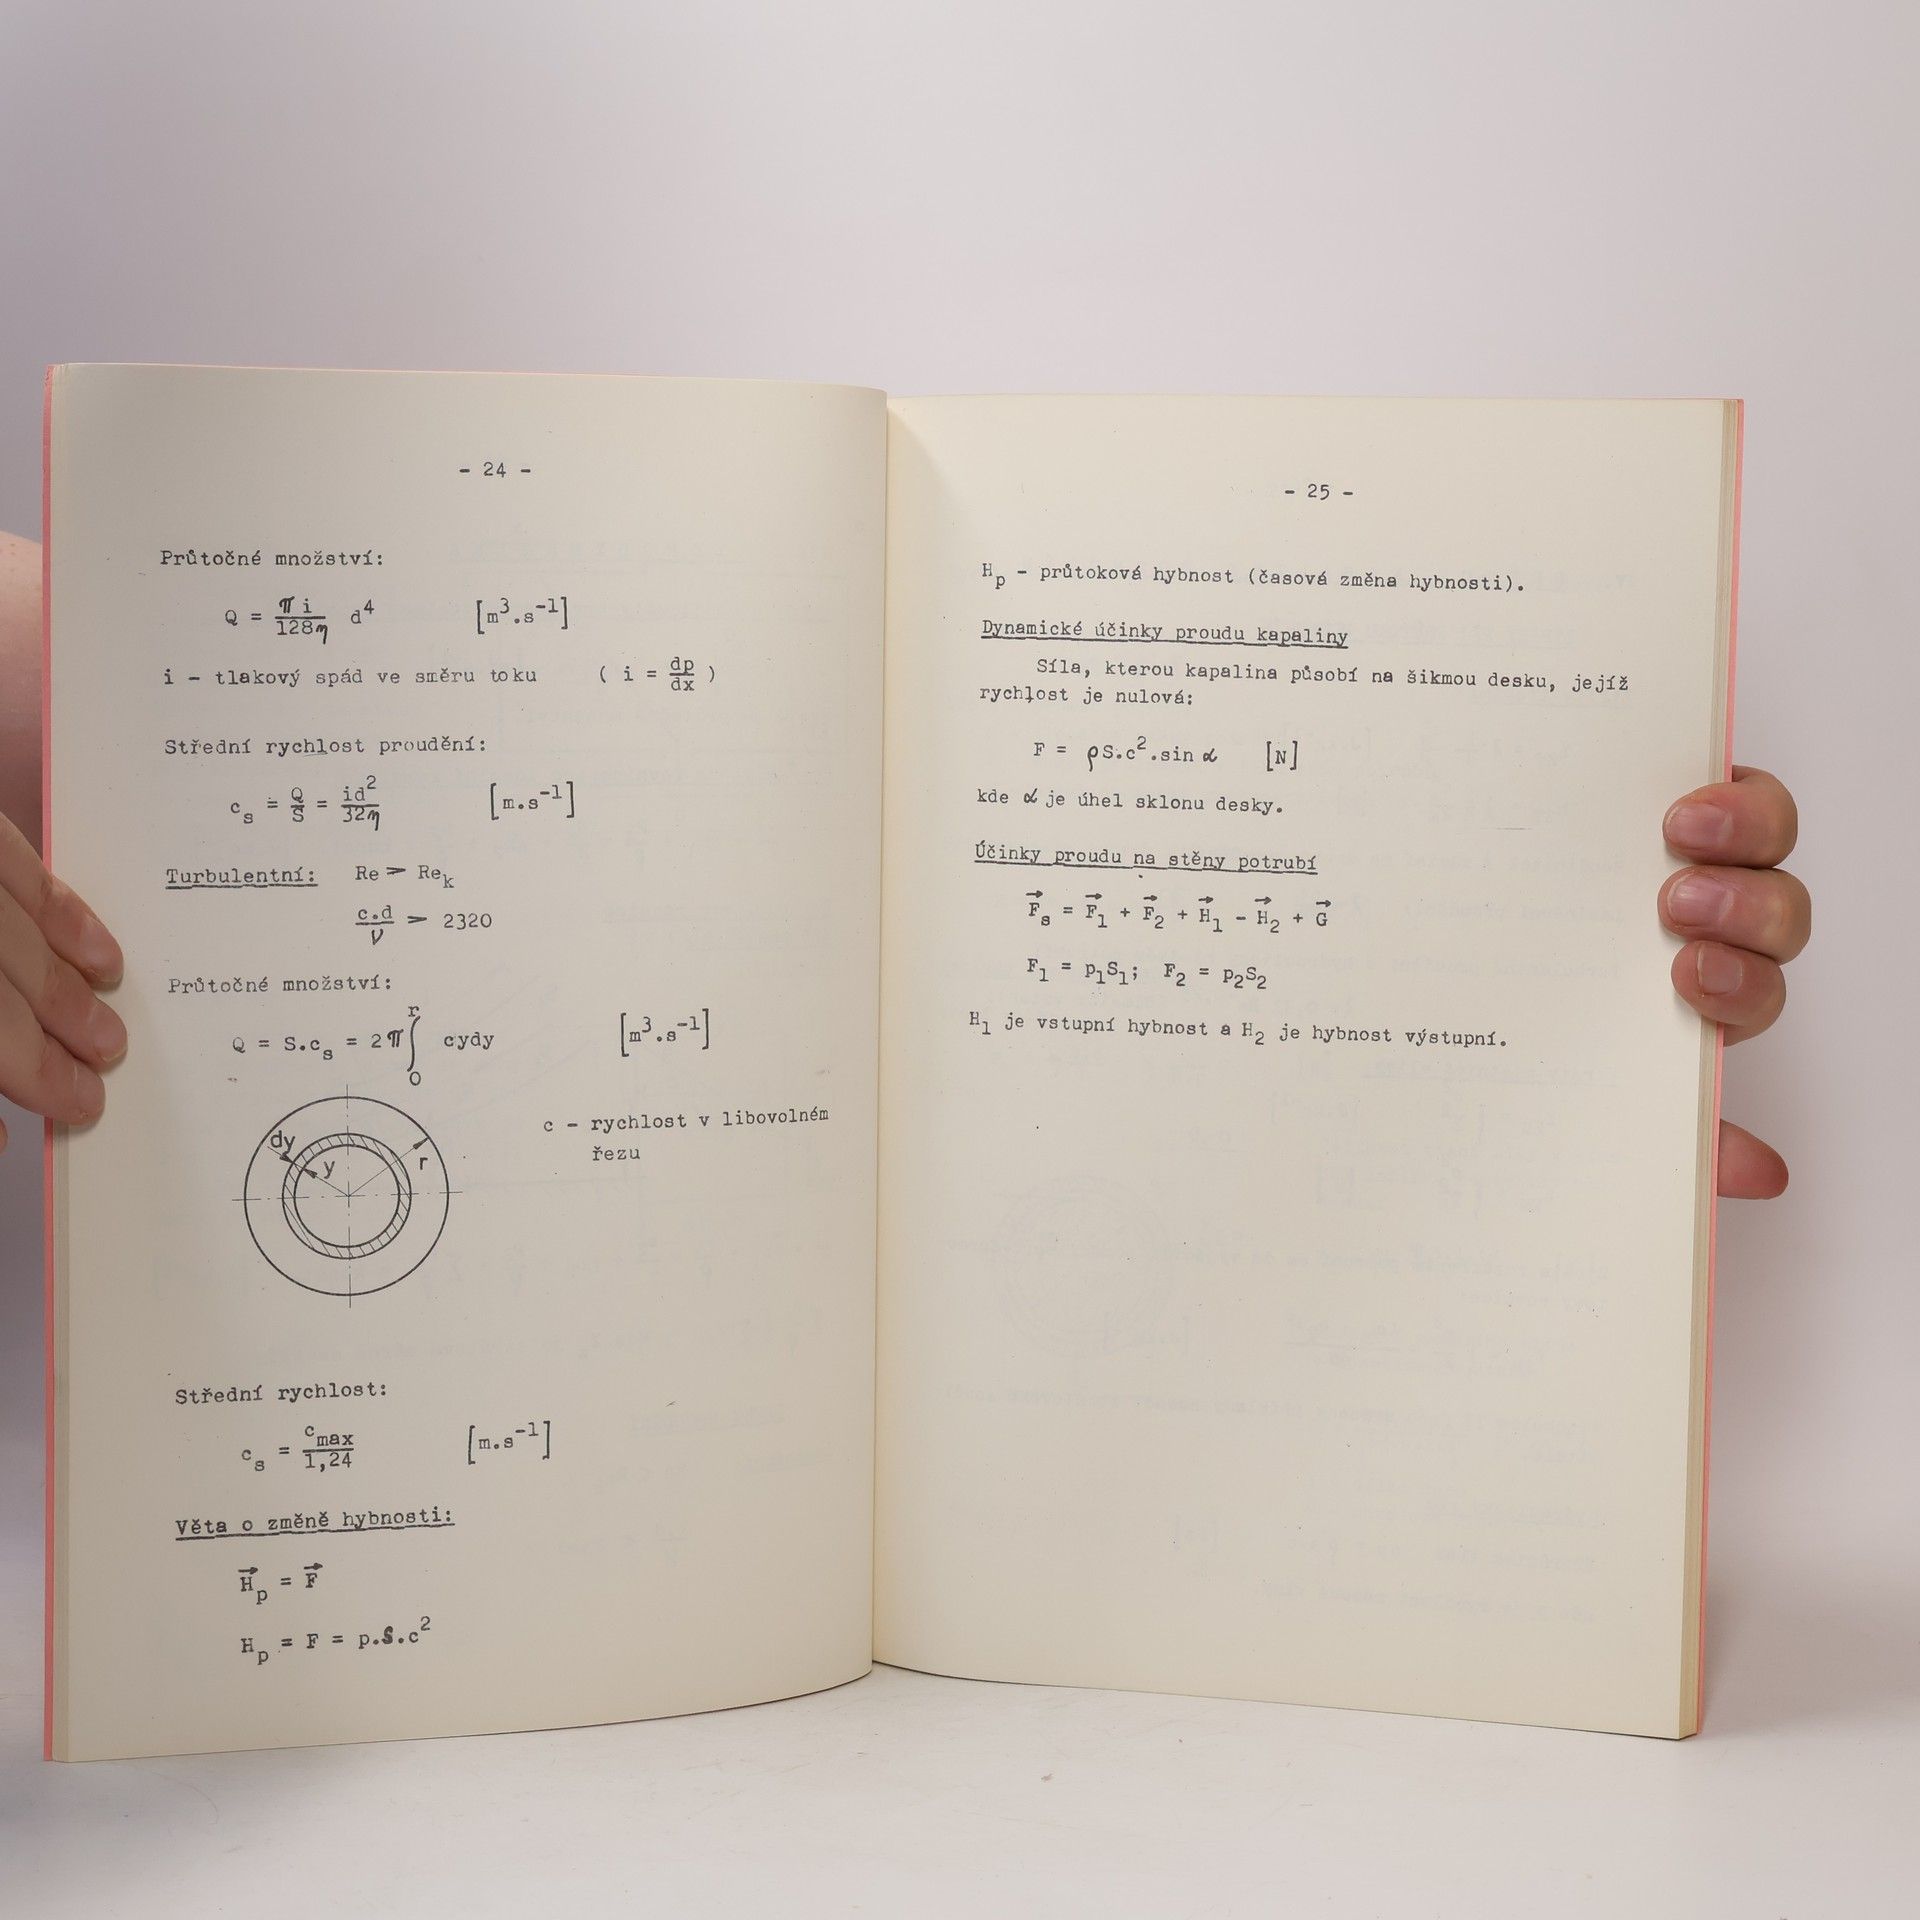 - 24 -
Průtočné množství:
Q = π i / 128η d⁴ [m³.s⁻¹]
i - tlakový spád ve směru toku ( i = dp/dx )
Střední rychlost proudění:
c_s = Q/S = id²/32η [m.s⁻¹]
Turbulentní: Re > Re_k
c.d/ν > 2320
Průtočné množství:
Q = S.c_s = 2π ∫₀ʳ cydy [m³.s⁻¹]
c - rychlost v libovolném
řezu
dy
y
r
Střední rychlost:
c_s = c_max/1,24 [m.s⁻¹]
Věta o změně hybnosti:
H⃗_p = F⃗
H_p = F = p.S.c²
- 25 -
H_p - průtoková hybnost (časová změna hybnosti).
Dynamické účinky proudu kapaliny
Síla, kterou kapalina působí na šikmou desku, jejíž
rychlost je nulová:
F = ρS.c².sin α [N]
kde α je úhel sklonu desky.
Účinky proudu na stěny potrubí
F⃗_s = F⃗₁ + F⃗₂ + H⃗₁ - H⃗₂ + G⃗
F₁ = p₁S₁; F₂ = p₂S₂
H₁ je vstupní hybnost a H₂ je hybnost výstupní.